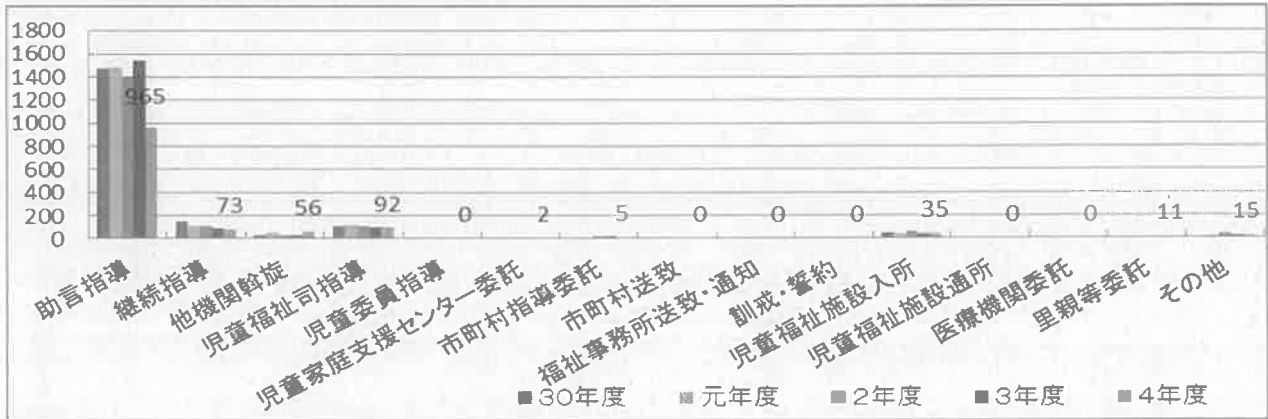 1800
1600
1400
1200
1000
800
600
400
200
0
965
73
56
92
0
2
5
0
0
0
35
0
0
11
15
助言指導
継続指導
他機関斡旋
児童福祉司指導
児童委員指導
児童家庭支援センター委託
市町村指導委託
市町村送致
福祉事務所送致・通知
訓戒・誓約
児童福祉施設入所
児童福祉施設通所
医療機関委託
里親等委託
その他
■30年度 ■元年度 ■2年度 ■3年度 ■4年度